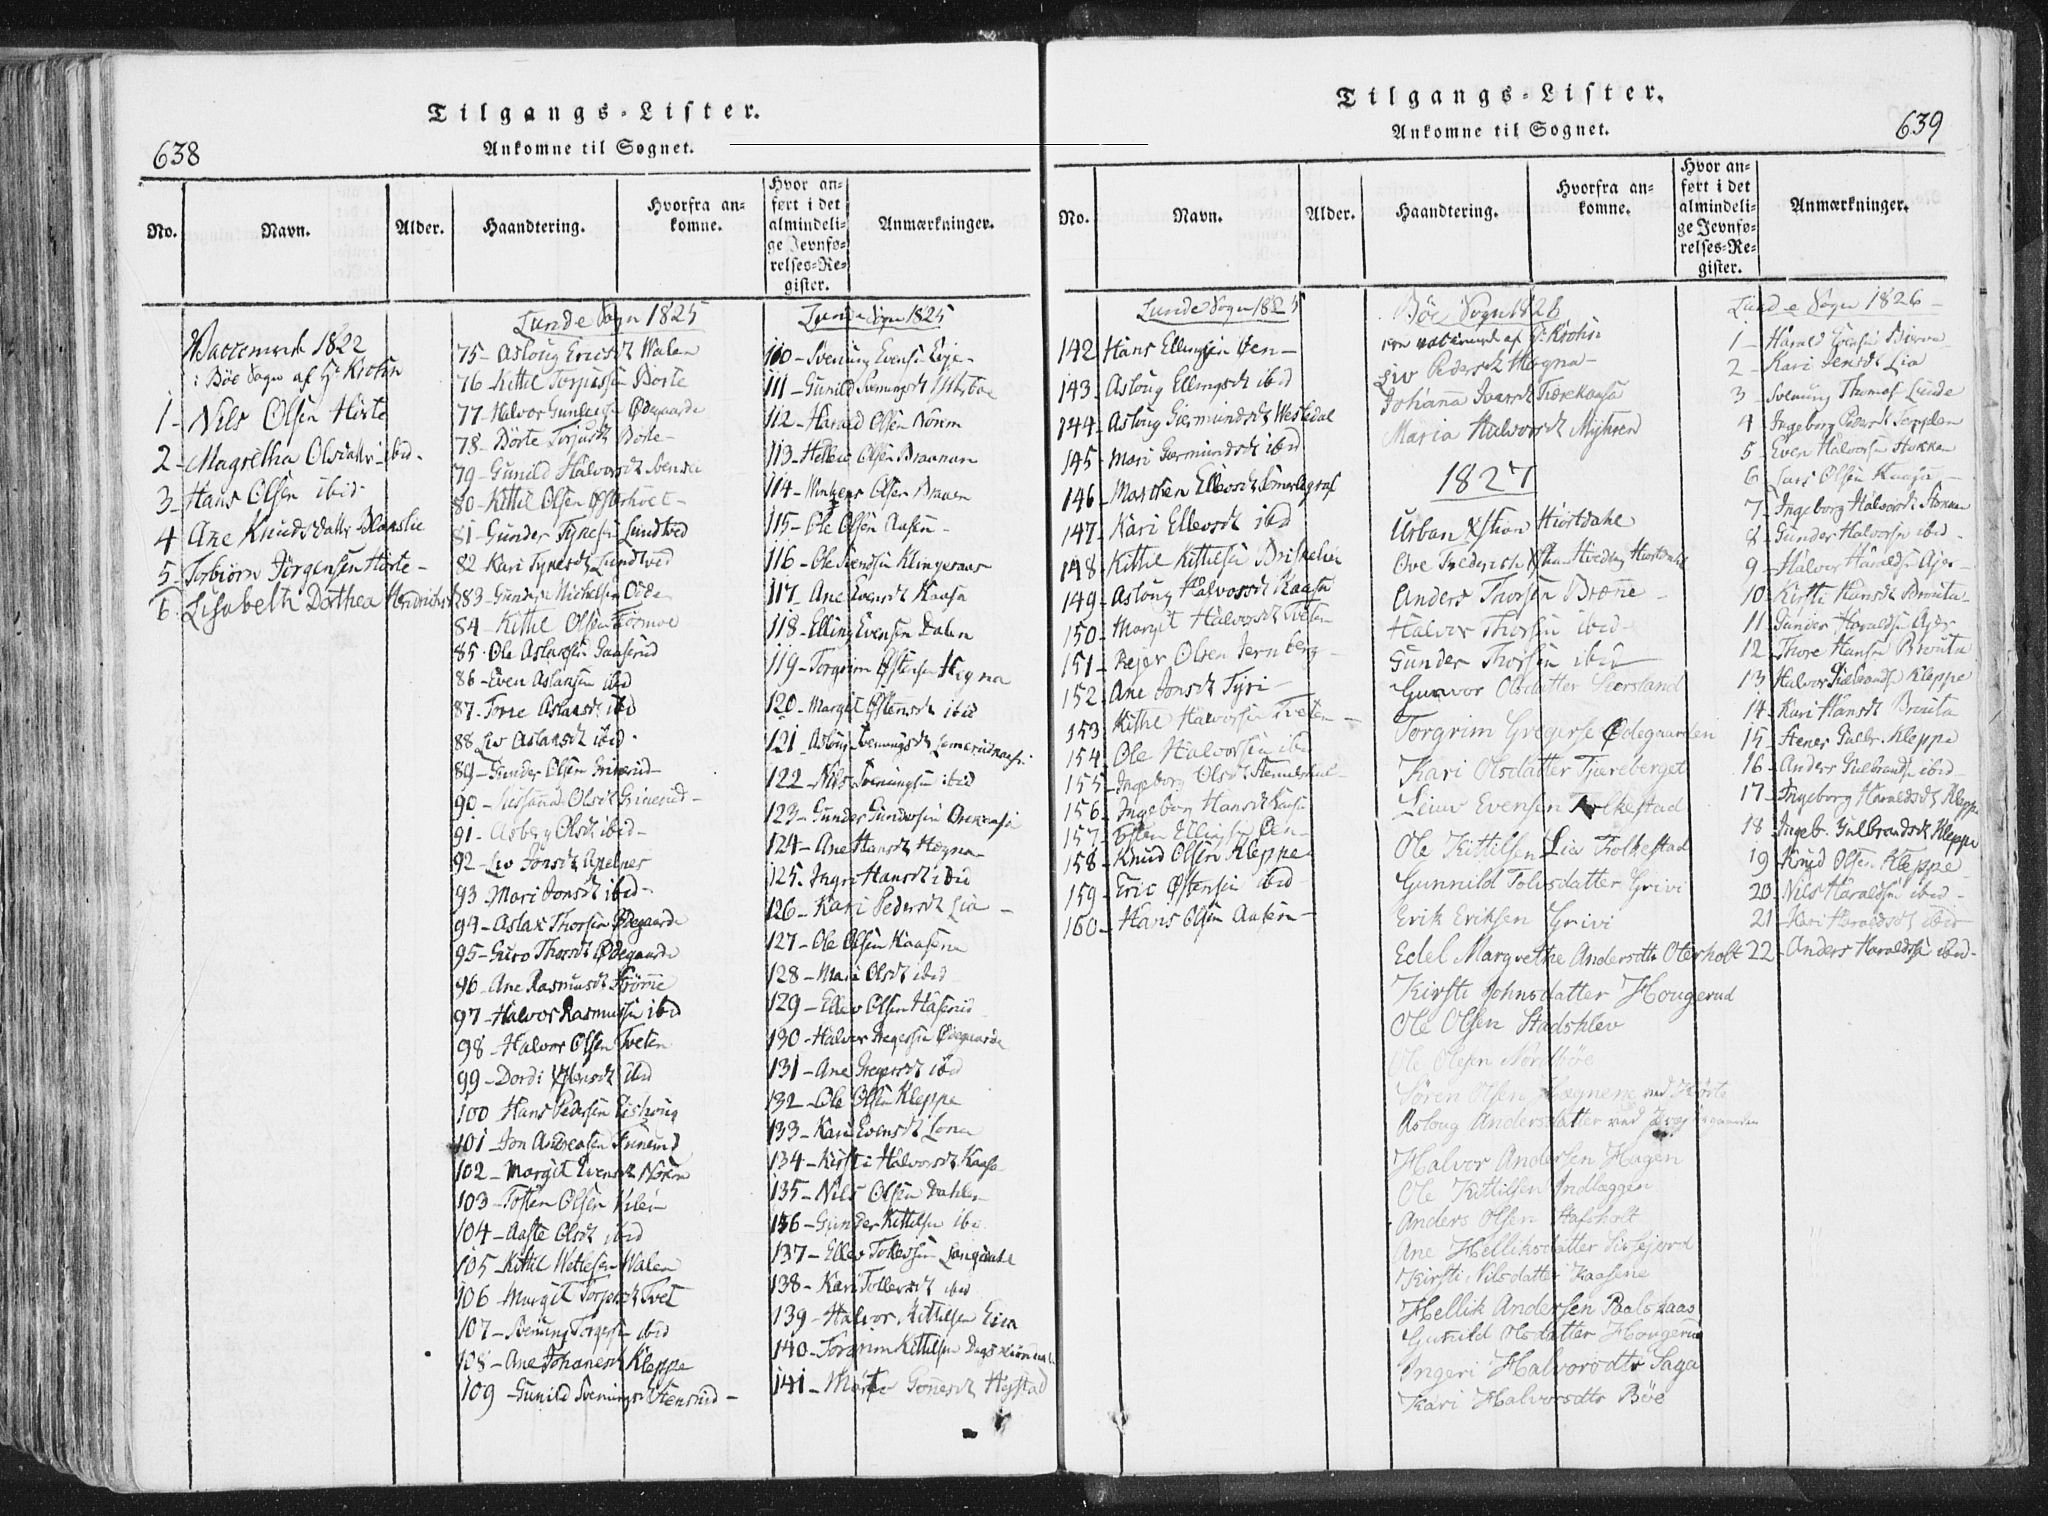 638
Tilgangs-Lister.
Ankomne til Sognet.
No.
Navn.
Alder.
Haandtering.
Hvorfra an-
komne.
Hvor an-
ført i det
almindeli-
ge Jevnfø-
relses-Re-
gister.
Anmærkninger.
1822
i Böe Sogn af Hr Krohn
1- Nils Olsen Hörte
2- Magretha Olsdatter ibid-
3- Hans Olsen ibid-
4 Ane Knudsdatter
5- Torbiörn Jörgensen Hörte-
6. Lisabeth Dorthea Hendrichsd
Lunde Sogn 1825
75- Asloug Ericsdt Walen
76- Kittil Torjussen Börte
77- Halvor Gunlecsen Ødegaarde
78- Börte Torjusdt Börte-
79- Gunild Halvorsdt Svenseie
80- Kittil Olsen Østerholt-
81- Gunder Tynesen Lundtved
82 Kari Tynesdt Lundtved
83- Gunder Michelsen Odde
84- Kittil Olsen
85- Ole Aslaksen
86- Even Aslaksen ibid
87- Tone Aslaksdt ibid
88 Liv Aslaksdt ibid-
89- Gunder Olsen Grinerud-
90- Susanna Olsdt Grinerud-
91- Olsdt ibid-
92- Liv Jonsdt Apelnes
93- Mari Jonsdt ibid-
94- Aslak Thorsen Ødegaarde
95- Guro Thorsdt Ødegaarde
96- Ane Rasmusdt
97- Halvor Rasmussen ibid
98- Halvor Olsen Tveten
99- Dordi Østensdt ibid
100 Hans Pedersen
101- Jon Andreasen
102- Margit Evensdt Norem
103- Tosten Olsen
104- Aaste Olsdt ibid
105- Kittil Wetlesen Walen
106- Margit Torjusdt Tvet
107- Svenung Torgersen ibid
108- Ane Johanesdt Kleppe
109- Gunild Svenungsdt Stensrud-
Lunde Sogn 1825
110- Svenung Evensen Eije-
111- Gunild Svenungsdt
112- Harald Olsen Norem
113- Hellic Olsen
114- Olsen
115- Ole Olsen Aasen-
116- Ole Svendsen Klingernas
117- Ane Evensdt Kaasa
118- Elling Evensen Dalen
119- Torgrim Østensen Hægna
120- Margit Østensdt ibid
121- Asloug Svenungsdt
122- Nils Svenungsen ibid
123- Gunder Gundersen
124- Ane Hansdt Hægna-
125- Ingri Hansdt ibid
126- Kari Pedersdt Lia -
127- Ole Olsen Kaasene
128- Mari Olsdt ibid
129- Ellev Olsen
130- Halvor Gregersen Ødegaarde
131- Ane Gregersdt ibid
132- Ole Olsen Kleppe
133- Kari Evensdt Lona
134- Kirsti Halvorsdt Kaasa
135- Nils Olsen Dahlen
136- Gunder Kittilsen ibid
137- Ellev Tollevsen Langkaas
138- Kari Tollevsdt ibid
139- Halvor Kittilsen Eien
140- Torgrim Kittilsen
141- Gonesdt Hegstad
639
Tilgangs-Lister.
Ankomne til Sognet.
No.
Navn.
Alder.
Haandtering.
Hvorfra an-
komne.
Hvor an-
ført i det
almindeli-
ge Jevnfø-
relses-Re-
gister.
Anmærkninger.
Lunde Sogn 1825
142- Hans Ellingsen Øen-
143- Asloug Ellingsdt ibid
144- Asloug Giermundsdt Wesledal
145- Mari Giermundsdt ibid
146- Marthen Ellevsdt
147- Kari Ellevsdt ibid
148- Kittil Kittilsen
149- Asloug Halvorsdt Kaasa
150- Margit Halvorsdt Tveten
151- Rejer Olsen Jernberg-
152- Ane Jonsdt Tyri-
153- Kittil Halvorsen Tveten-
154- Ole Halvorsen ibid
155- Ingeborg Olsdt
156- Ingeborg Hansdt Kaasa
157- Tosten Ellingsen Øen-
158- Knud Olsen Kleppe
159- Eric Østensen ibid-
160- Hans Olsen Aasen-
Böe Sogn 1826
af Hr Krohn
Liv Pedersdt Hægna-
Johanna
Maria Halvorsdt Myhren
1827
Urban Xstian Hiertdahl
Ove Frederich Xstian Hiertdahl
Anders Thorsen Brænne-
Halvor Thorsen ibid-
Gunder Thorsen ibid
Gunvor Olsdatter Siorsland
Torgrim Gregersen Ødegaarden
Kari Olsdatter Tjæreberget
Leiuv Evensen Folkestad
Ole Kittilsen Lie Folkestad
Gunnild Tolvsdatter Grivi
Erik Eriksen Grivi
Edel Margrethe Andersdtr Oterholt
Kirsti Johnsdatter Hougerud
Ole Olsen Stadsklev
Ole Olsen Nordböe
Sören Olsen Hægnene ved Hörte
Aslaug Andersdatter ved
Halvor Andersen Hagen
Ole Kittilsen Indlæggen
Anders Olsen
Ane Helliksdatter
Kirsti Nilsdatter Kaasene
Hellik Andersen Paalskaas
Gunild Olsdatter Hougerud
Ingeri Halvorsdtr Saga
Kari Halvorsdtr Böe
Lunde Sogn 1826-
1- Harald
2- Kari Jensdt Lia
3- Svenung Thomasen Lunde
4- Ingeborg Pedersdt
5- Even Halvorsen
6- Lars Olsen
7- Ingeborg Halvorsdt
8- Gunder Halvorsen ibid-
9- Halvor Haraldsen Ajer-
10- Kirsti Hansdt Bronta-
11- Gunder Haraldsen Ajer
12- Thore Hansen Bronta
13- Halvor Gulbrandsen Kleppe
14- Kari Hansdt Bronta
15- Gulbr. Kleppe
16- Anders Gulbrandsen ibid-
17- Ingeborg Haraldsdt Kleppe
18- Ingeb. Gulbrandsdt Kleppe
19- Knud Olsen Kleppe-
20- Nils Haraldsen ibid-
21- Kari Haraldsdt ibid
22- Anders Haraldsen ibid-